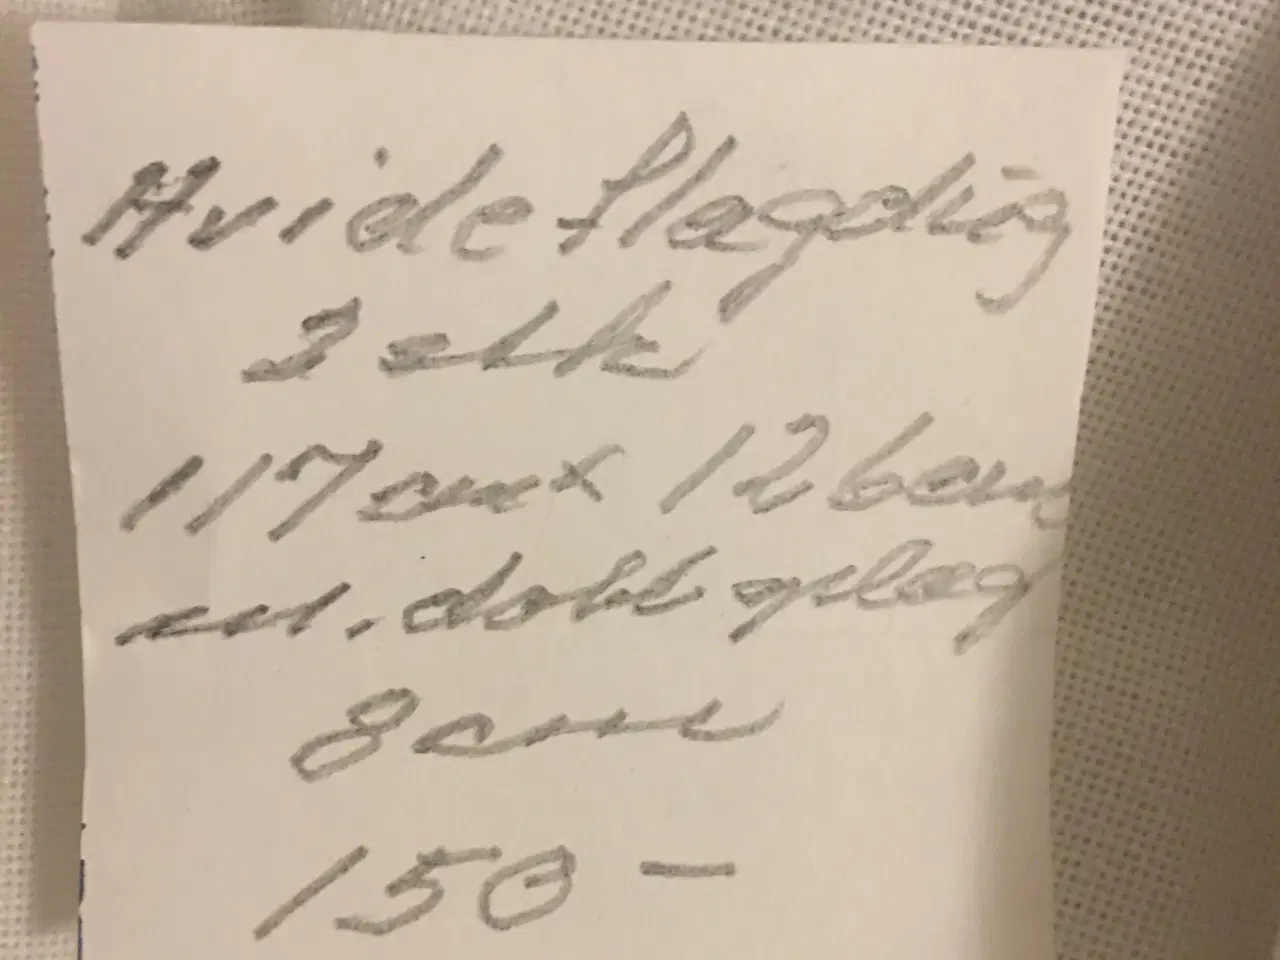 Hvide flagdug
2 stk
117 cm x 126 cm
m. dobb oplæg
8 cm
150 -